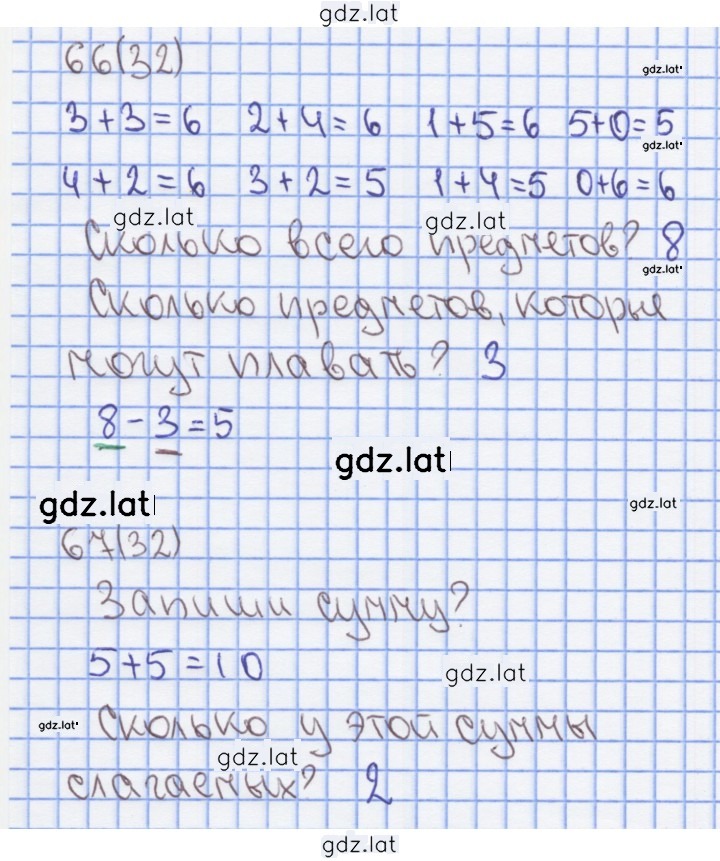 gdz.lat
66(32)
gdz.lat
3+3=6 2+4=6 1+5=6 5+0=5
gdz.lat
4+2=6 3+2=5 1+4=5 0+6=6
gdz.lat gdz.lat
Сколько всего предметов? 8
gdz.lat
Сколько предметов, которые
могут плавать? 3
8-3=5
gdz.lat
gdz.lat gdz.lat
67(32)
Запиши сумму?
5+5=10
gdz.lat
gdz.lat Сколько у этой суммы
gdz.lat
слагаемых? 2
gdz.lat